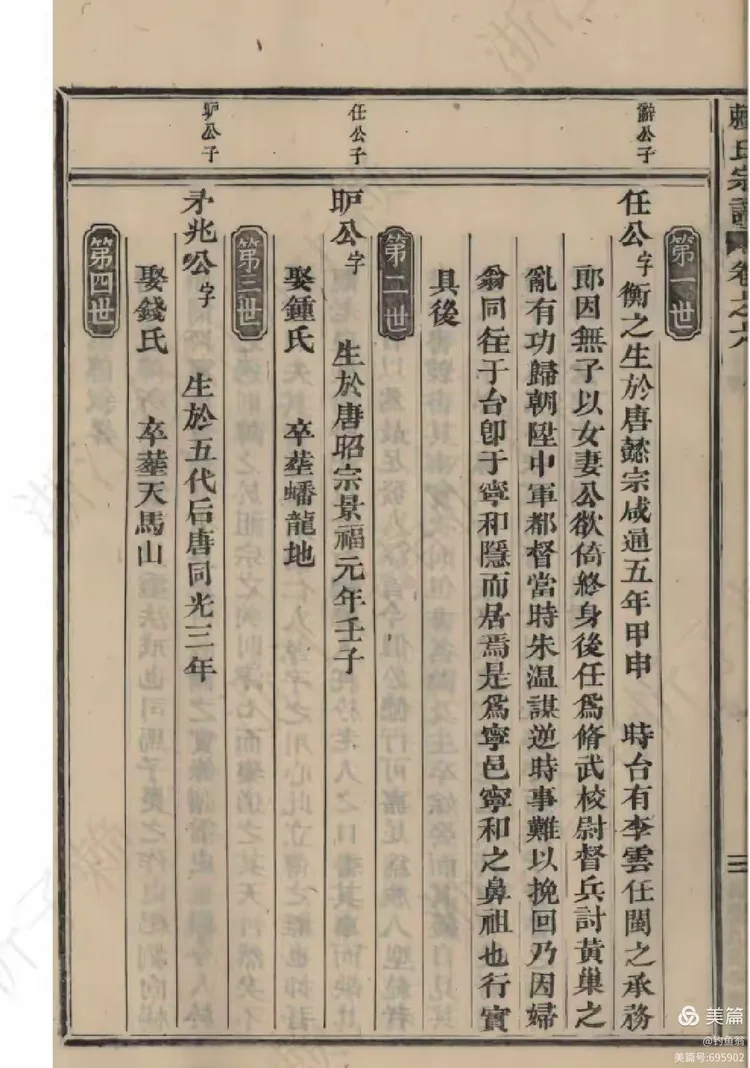 氏宗譜 卷之六 三
辭公子
第一世
任公字衡之生於唐懿宗咸通五年甲申 時台有李雲任閩之承務
郎因無子以女妻公欲倚終身後任爲脩武校尉督兵討黃巢之
亂有功歸朝陞中軍都督當時朱温謀逆時事難以挽回乃因婦
翁同往于台卽于寧和隱而居焉是爲寧邑寧和之鼻祖也行實
具後
任公子
第二世
公字 生於唐昭宗景福元年壬子
娶鍾氏 卒塟蟠龍地
公子
第三世
矛兆公字 生於五代后唐同光三年
娶錢氏 卒塟天馬山
第四世
美篇
@钓鱼翁
美篇号:695902